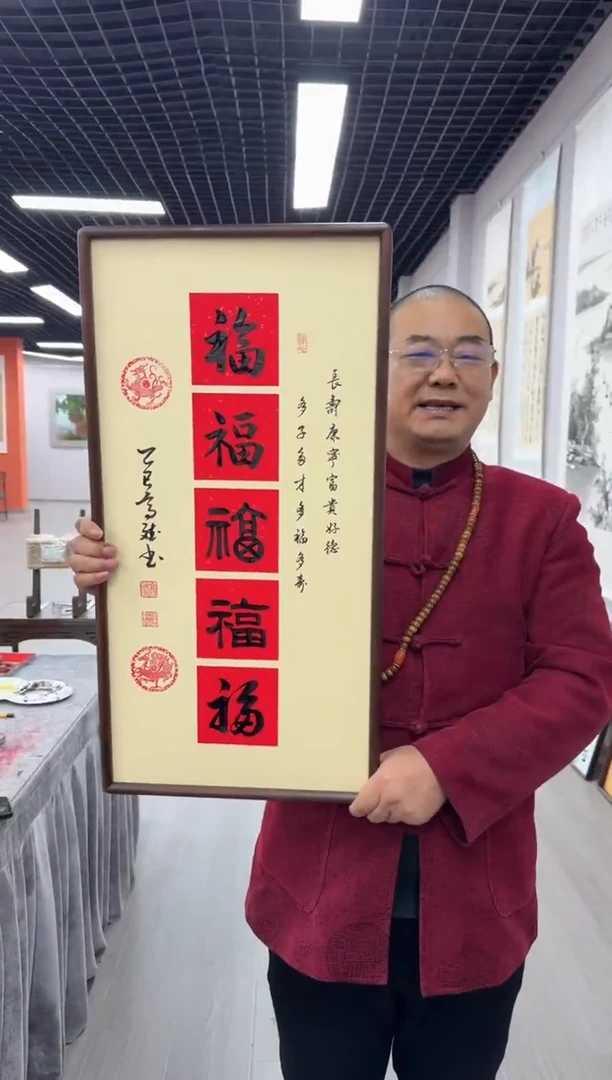 長壽康寧富貴好德
多子多才多福多寿
福
福
福
福
福
乙巳高书